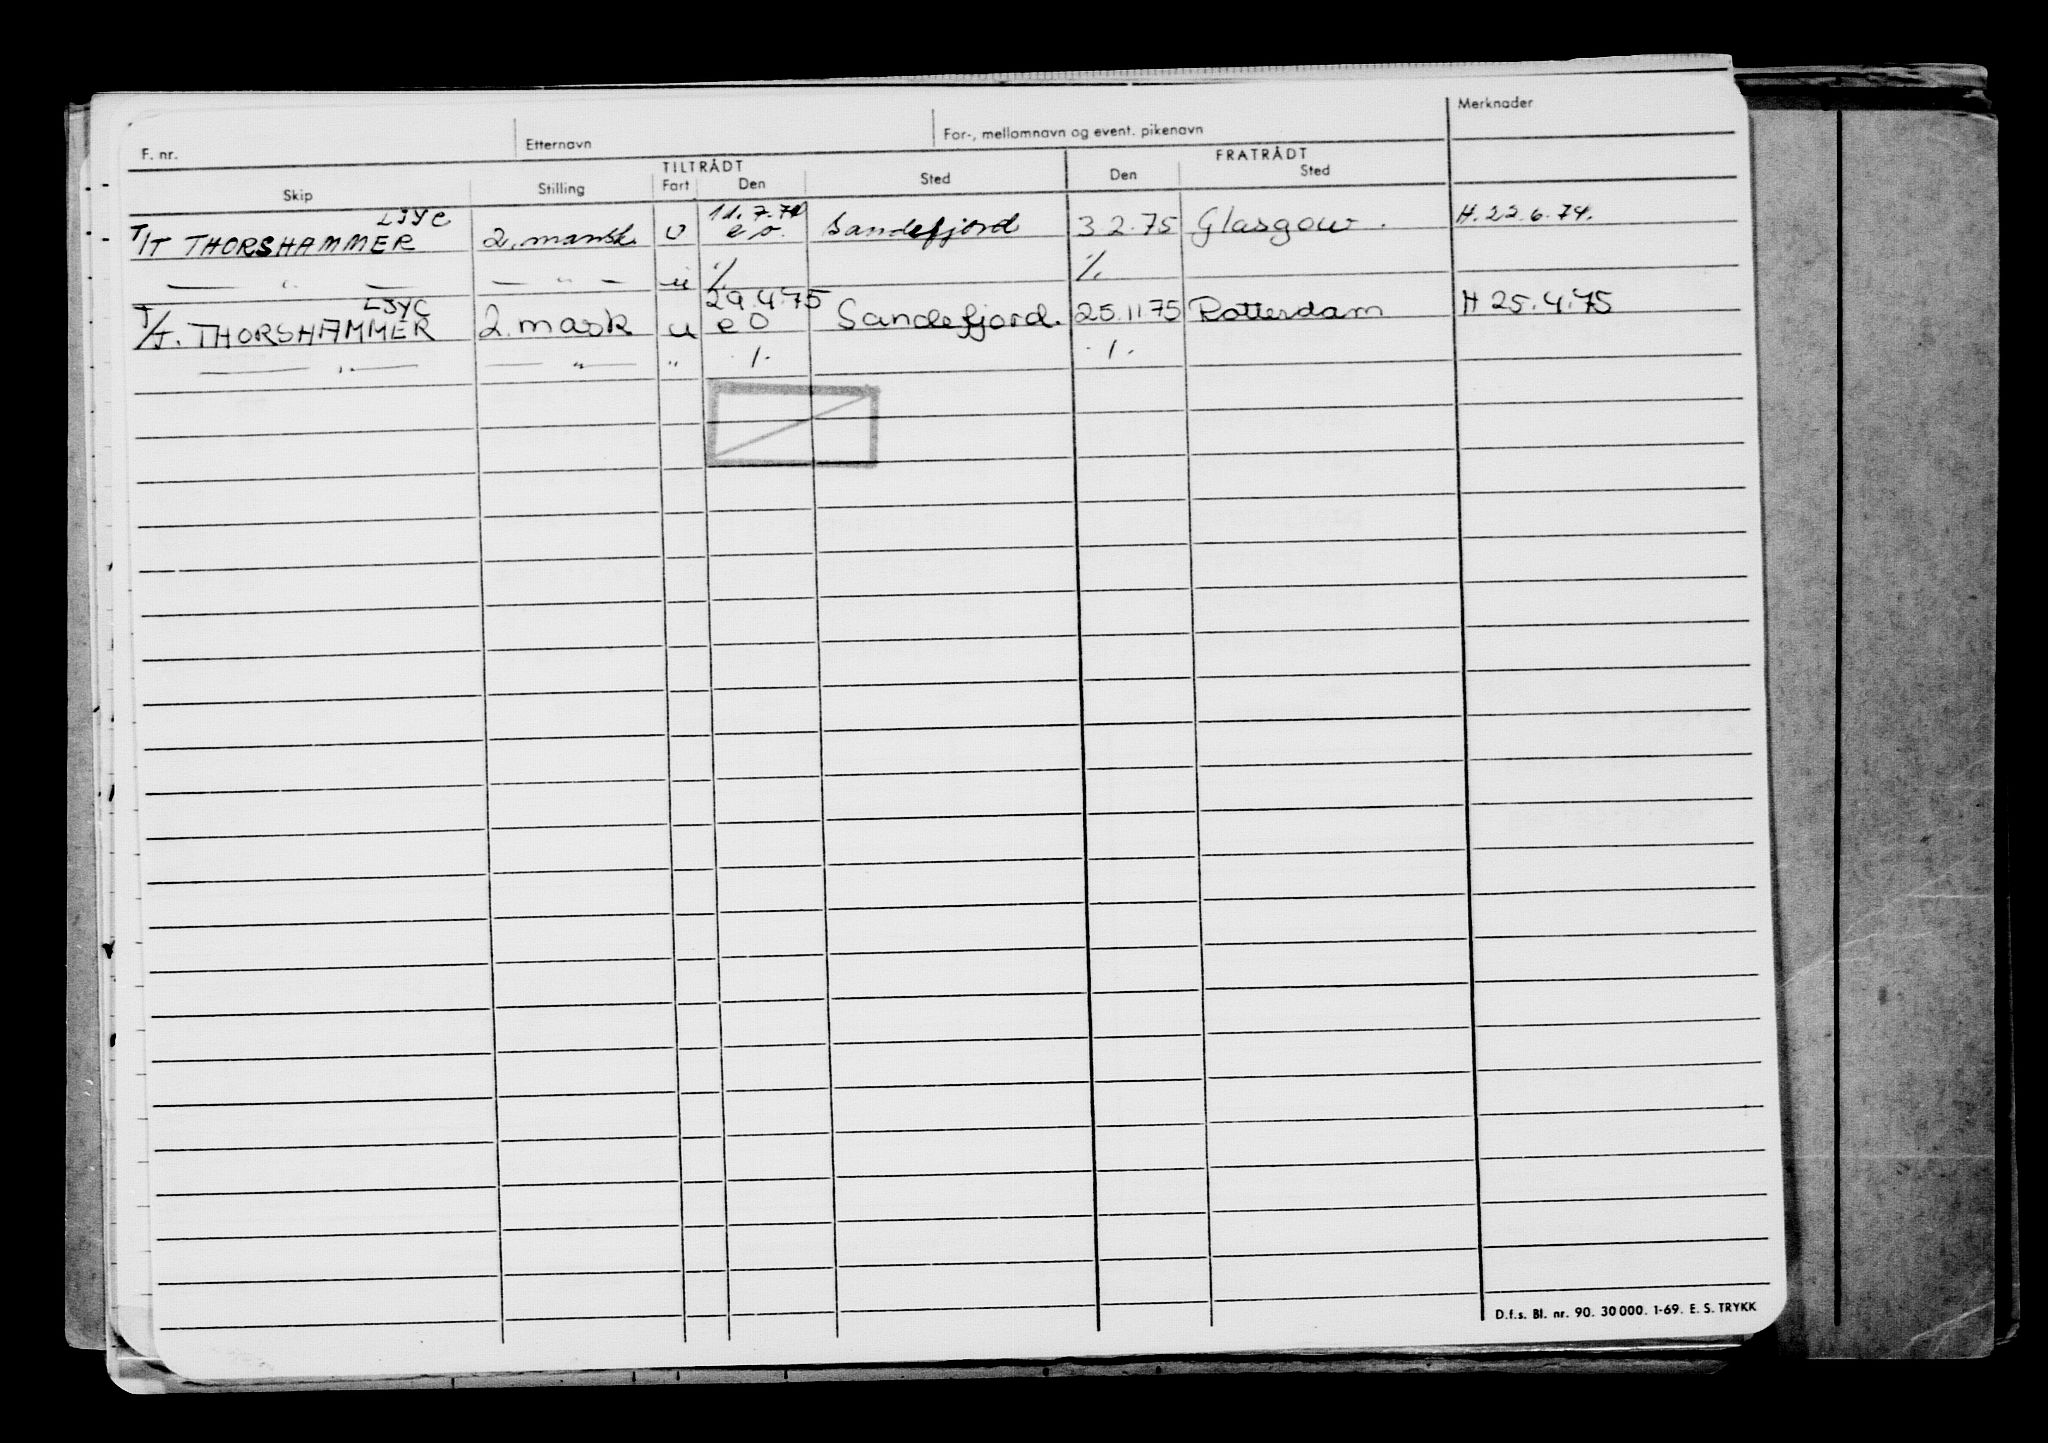 F. nr. Etternavn For-, mellomnavn og event. pikenavn Merknader
TILTRÅDT FRATRÅDT
Skip Stilling Fart Den Sted Den Sted
LJYC 11.7.74
T/T THORSHAMMER 2. mask. u e o. Sandefjord 3 2.75 Glasgow. H. 22.6.74.
— " — — " — u ./. ./.
LJYC 29.4.75
T/T. THORSHAMMER 2. mask u e o Sandefjord. 25.11.75 Rotterdam H 25.4.75
— " — — " — " ./. ./.
D.f.s. Bl. nr. 90. 30 000. 1-69. E. S. TRYKK